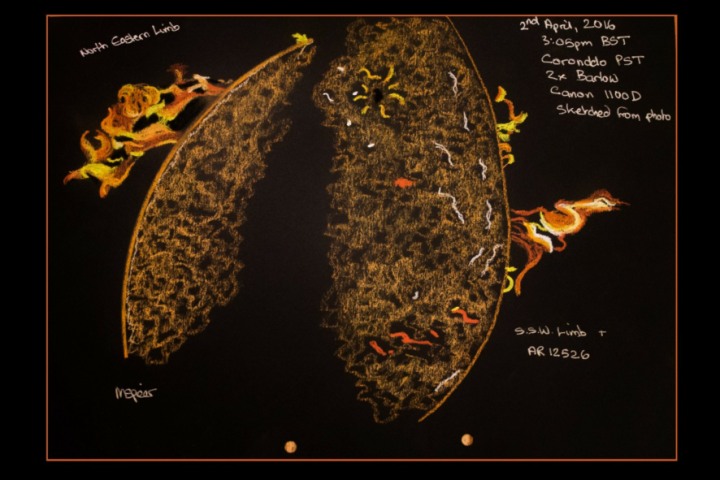 North Eastern Limb
2nd April, 2016
3:05pm BST
Coronado PST
2x Barlow
Canon 1100D
Sketched from photo
S.S.W. Limb +
AR 12526